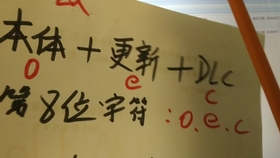 本体+更新+DLC
o e c
第8位字符:o.e.c